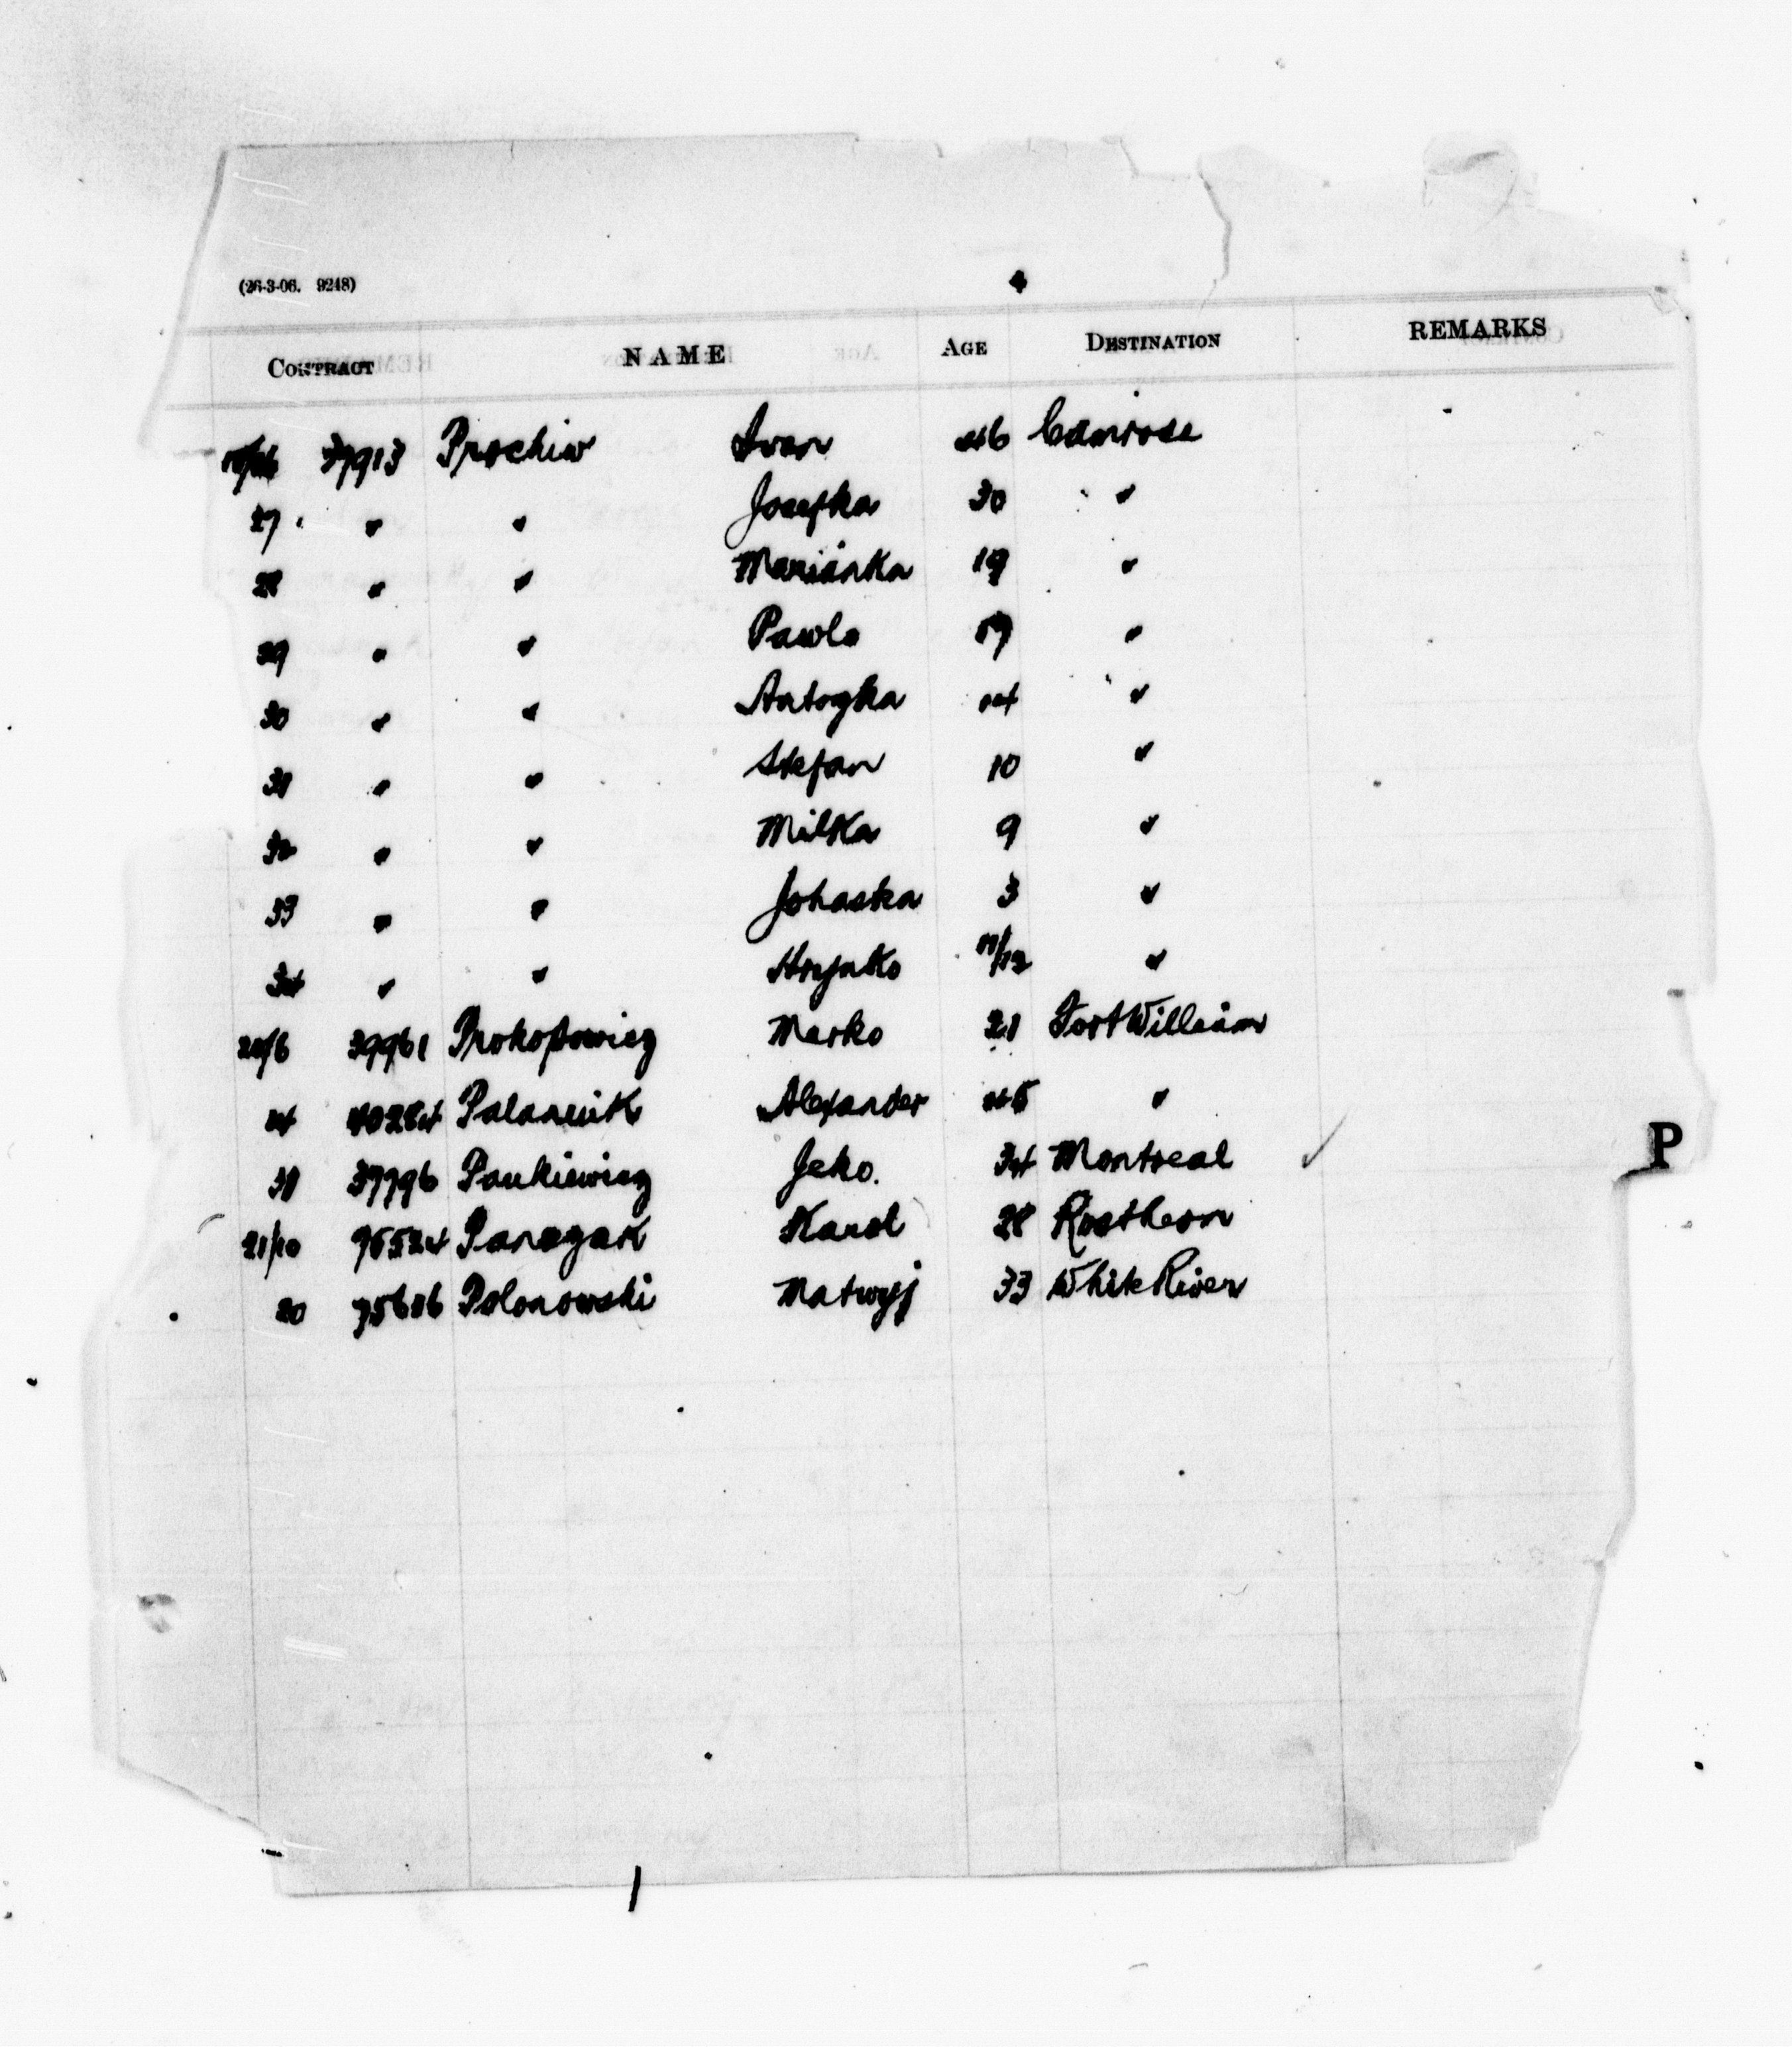 (26-3-06. 9248)
CONTRACT NAME AGE DESTINATION REMARKS
37913 Prochiw Ivan 46 Camrose
27 " " Josefka 30 "
28 " " Marianka 19 "
29 " " Pawlo 17 "
30 " " Antoszka 14 "
31 " " Stefan 10 "
32 " " Milka 9 "
33 " " Johaska 3 "
34 " " Hrynko 11/12 "
20/6 39961 Prokopowicz Marko 21 Fort William
14 40284 Palaniuk Alexander 45 "
31 37796 Paukiewicz Jeko. 34 Montreal ✓
P
21/10 96524 Karol 28 Rosthern
20 75616 Polonowski Matwyj 33 White River